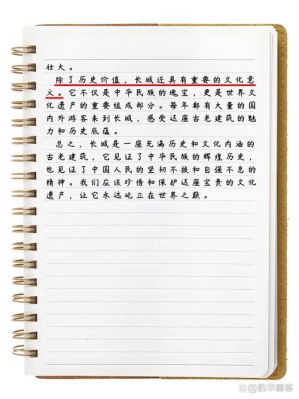 壮大。
除了历史价值，长城还具有重要的文化意
义。它不仅是中华民族的瑰宝，更是世界文
化遗产的重要组成部分。每年都有大量的国
内外游客来到长城，感受这座古老建筑的魅
力和历史底蕴。
总之，长城是一座充满历史和文化内涵的
古老建筑，它见证了中华民族的辉煌历史，
也见证了中国人民的坚韧不拔和自强不息的
精神。我们应该珍惜和保护这座宝贵的文化
遗产，让它永远屹立在世界之巅。